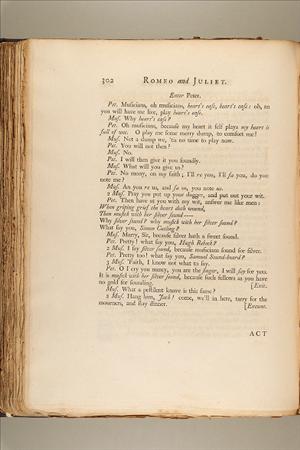 302 ROMEO and JULIET.
Enter Peter.
Pet. Musicians, oh musicians, heart's ease, heart's ease: oh, an
you will have me live, play heart's ease.
Mus. Why heart's ease?
Pet. Oh musicians, because my heart it self plays my heart is
full of woe. O play me some merry dump, to comfort me!
Mus. Not a dump we, 'tis no time to play now.
Pet. You will not then?
Mus. No.
Pet. I will then give it you soundly.
Mus. What will you give us?
Pet. No mony, on my faith; I'll re you, I'll fa you, do you
note me?
Mus. An you re us, and fa us, you note us.
2 Mus. Pray you put up your dagger, and put out your wit.
Pet. Then have at you with my wit, answer me like men:
When griping grief the heart doth wound,
Then musick with her silver sound----
Why silver sound? why musick with her silver sound?
What say you, Simon Catling?
Mus. Marry, Sir, because silver hath a sweet sound.
Pet. Pretty! what say you, Hugh Rebeck?
2 Mus. I say silver sound, because musicians sound for silver.
Pet. Pretty too! what say you, Samuel Sound-board?
3 Mus. 'Faith, I know not what to say.
Pet. O I cry you mercy, you are the singer, I will say for you.
It is musick with her silver sound, because such fellows as you have
no gold for sounding. [Exit.
Mus. What a pestilent knave is this same?
2 Mus. Hang him, Jack! come, we'll in here, tarry for the
mourners, and stay dinner. [Exeunt.
ACT